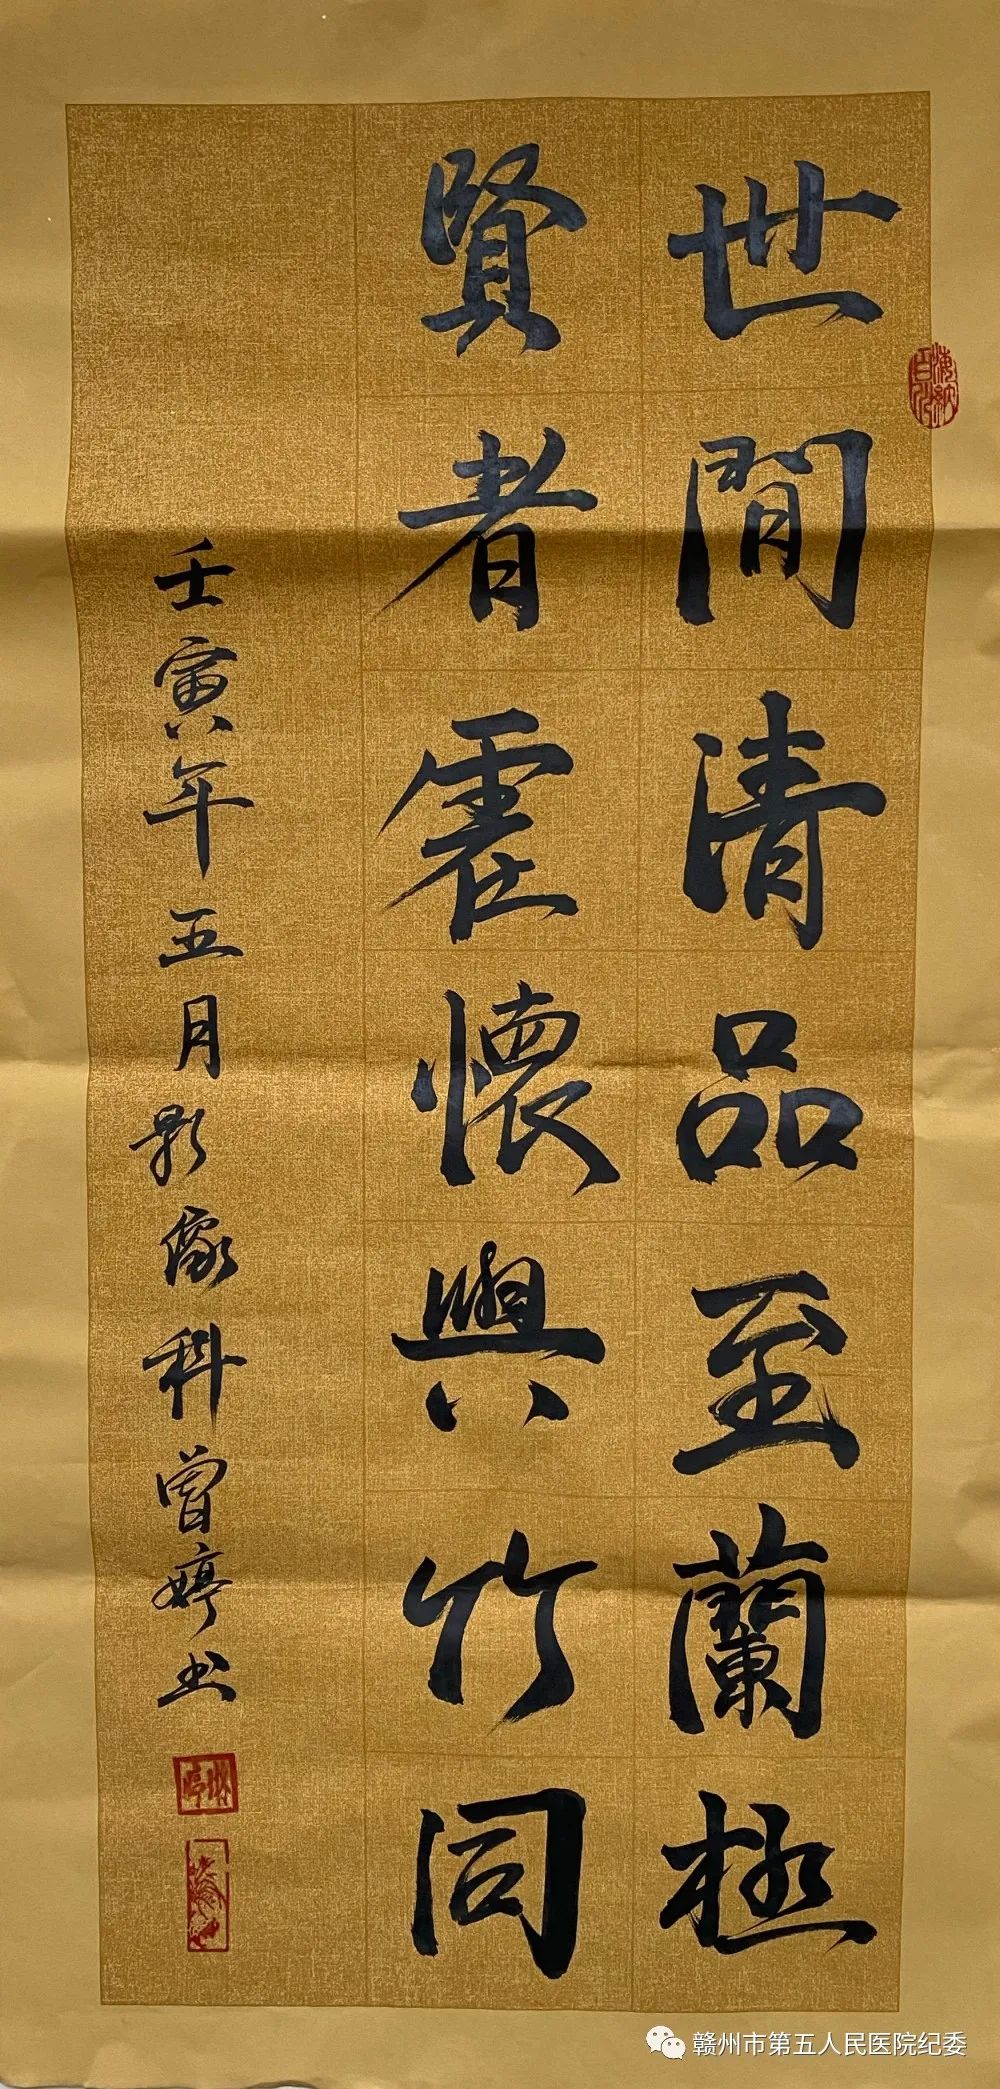 世閒清品至蘭極
賢者虛懷與竹同
壬寅年五月影像科曾婷书
海納百川
赣州市第五人民医院纪委